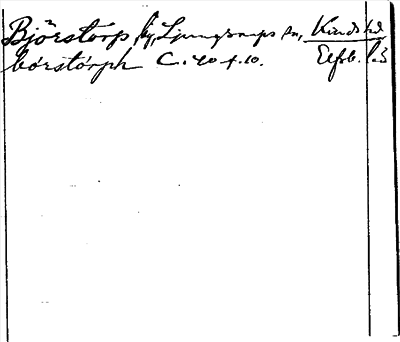 Björstorp, by, Ljungsarps sn, Kinds hd
börstörph C. 40 f. 10. Elfsb. l.